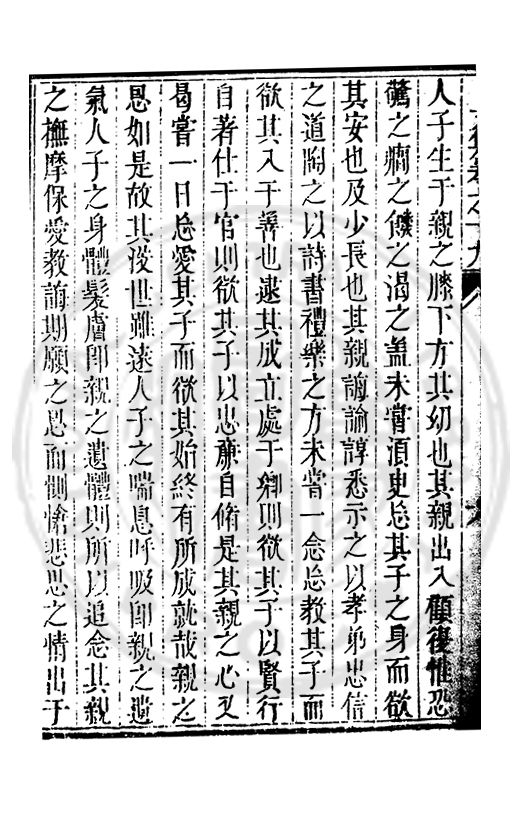 卷之十九
人子生于親之膝下方其幼也其親出入顧復惟恐
驚之癇之饑之渴之盖未嘗湏臾忘其子之身而欲
其安也及少長也其親誨諭諄悉示之以孝弟忠信
之道陶之以詩書禮樂之方未嘗一念忘教其子而
欲其入于善也逮其成立處于鄉則欲其子以賢行
自著仕于官則欲其子以忠廉自脩是其親之心又
曷嘗一日忘愛其子而欲其始終有所成就哉親之
恩如是故其後世雖遠人子之喘息呼吸卽親之遺
氣人子之身體髮膚卽親之遺體則所以追念其親
之撫摩保愛教誨期願之恩而惻愴悲思之情出于